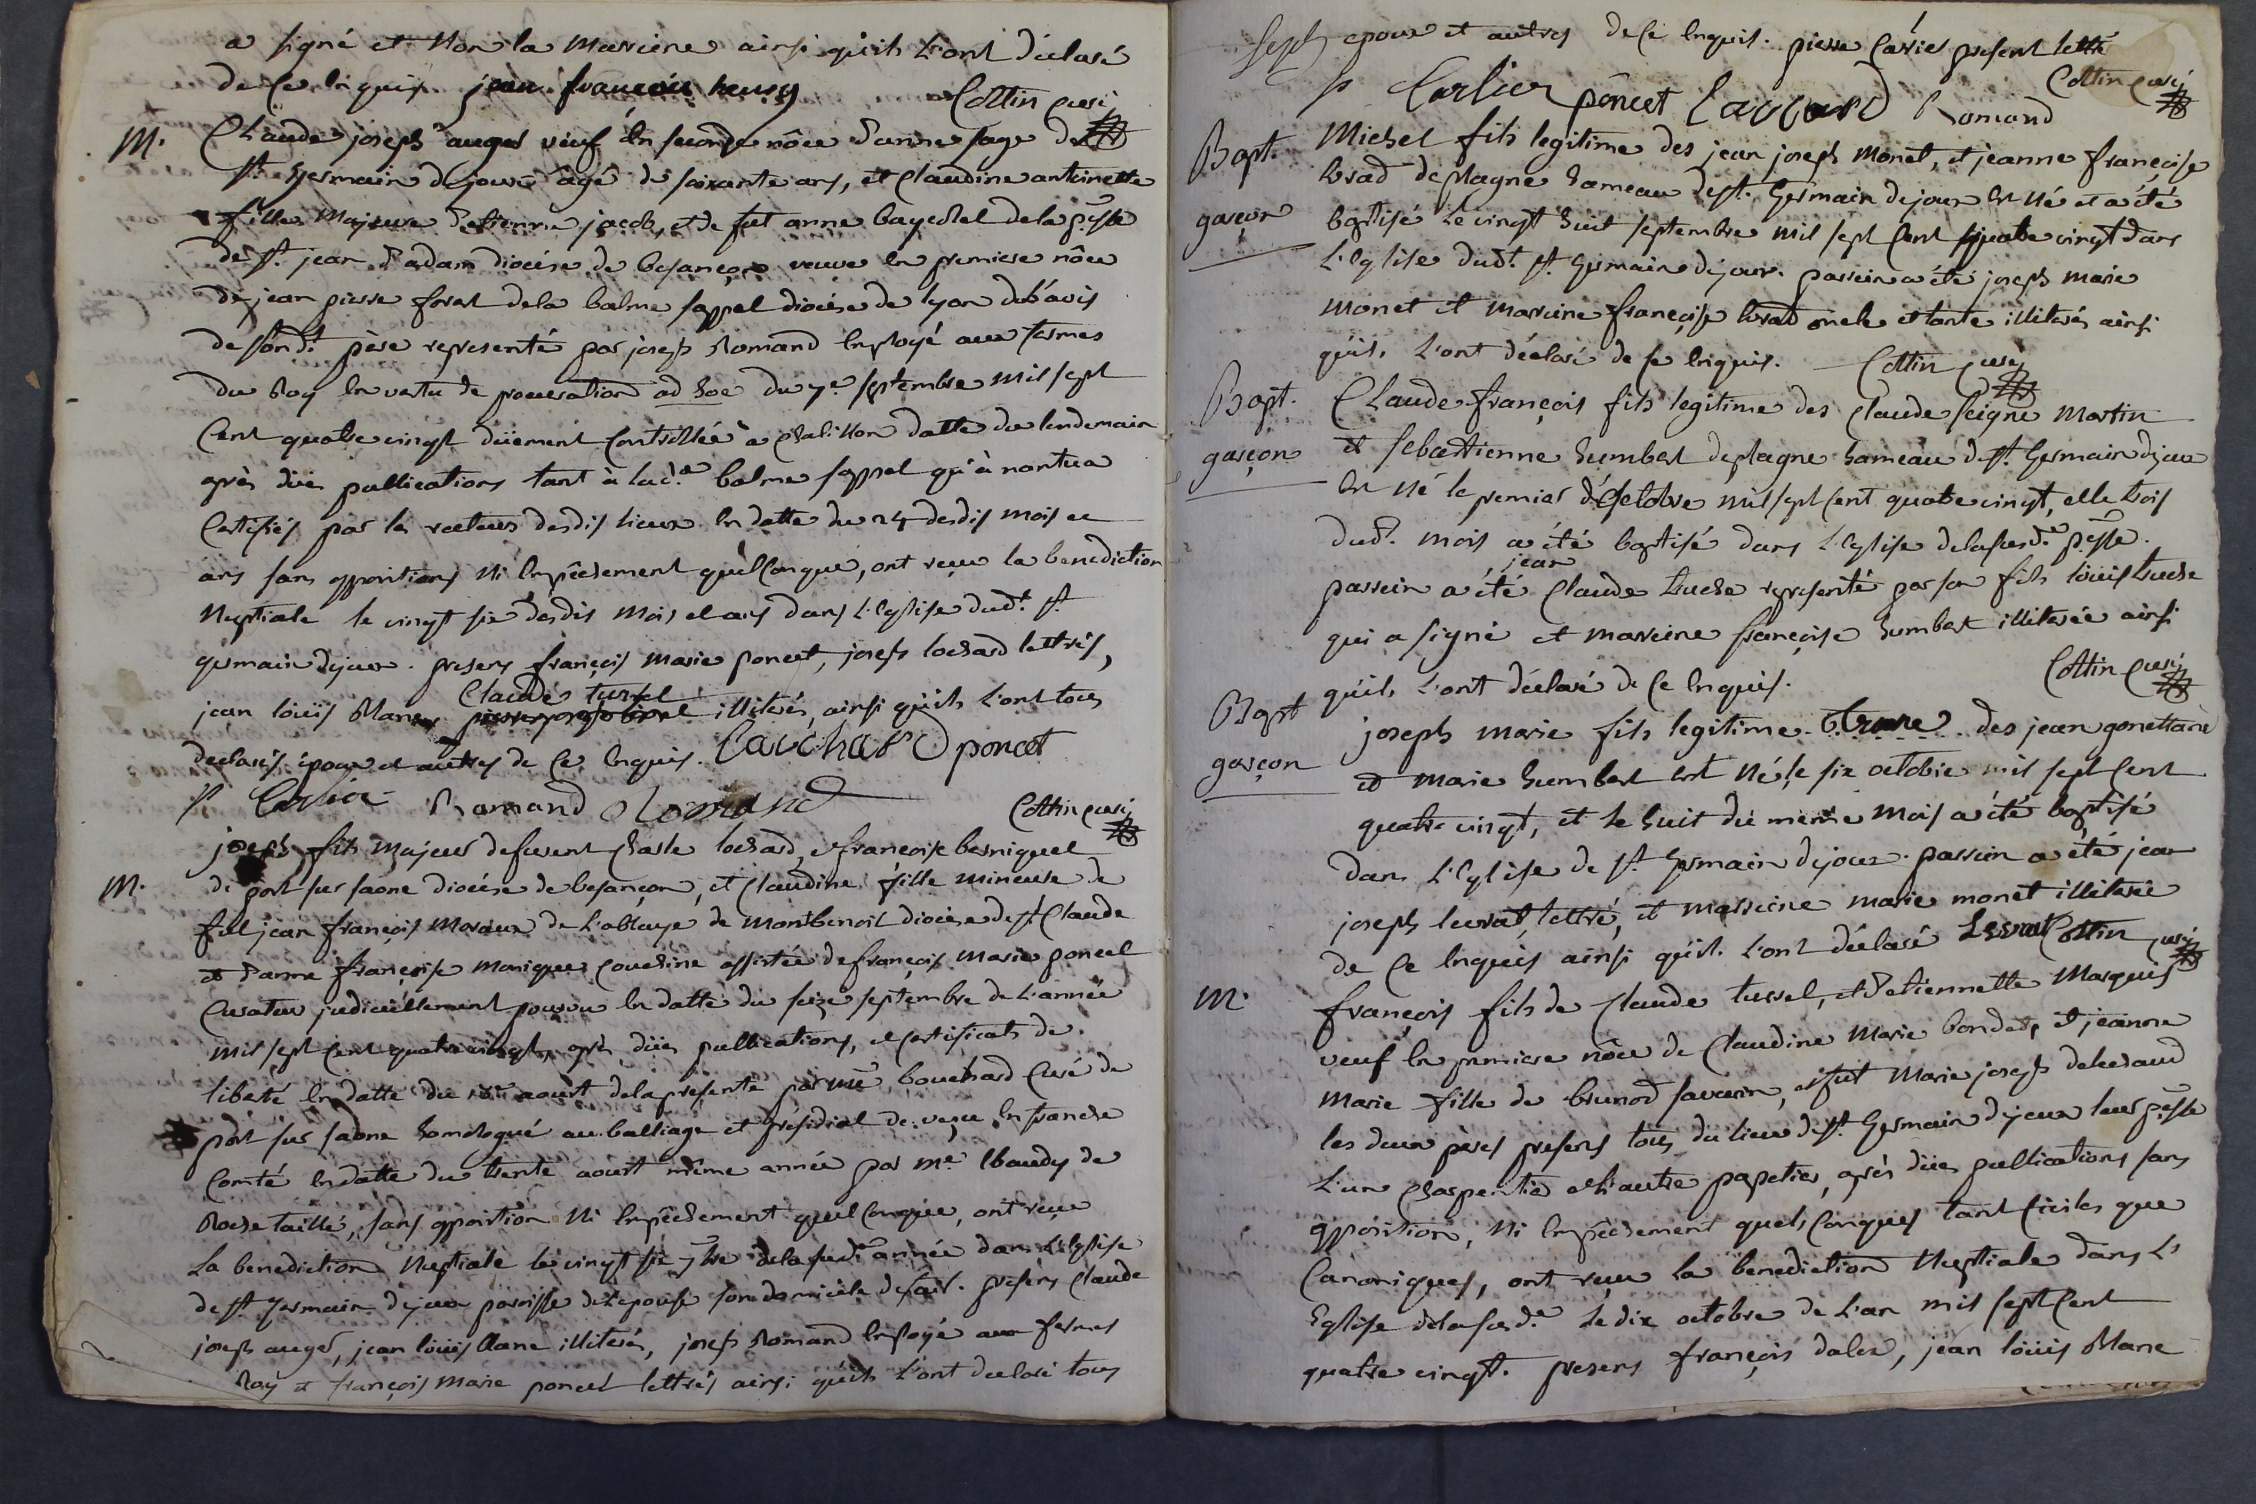 a signé et non la marreine ainsi qu'ils l'ont déclaré
de ce enquis. jean françois humy Cottin curé
M. Claude joseph auger veuf en seconde nôce d'anne sage de
st. germain dejoux âgé de soixante ans, et claudine antoinette
fille majeure d'etienne jacob, et de fut anne de la psse
de st. jean d'adam diocése de besançon veuve en premiere nôce
de jean pierre foras de la balme sappel diocése de lyon de l'avis
de sond.t père representé par joseph Romand employé aux fermes
du Roy en vertu de procuration ad hoc du 7e. septembre mil sept
cent quatre vingt düement contrôllée à chatillon datte du lendemain
après düe publications tant à lad.e balme sappel qu'à nantua
certifiés par les recteurs desdis lieux en datte du 24 desdis mois et
ans sans oppositions ni empêchement quelconque, ont reçu la benediction
nuptiale le vingt six desdis mois et ans dans l'eglise dud.t st.
germain dejoux. presens françois marie poncet, joseph lochard lettrés,
Claude tursel
jean loüis blanc illiterés, ainsi qu'ils l'ont tous
declarés epoux et autres de ce enquis. Lauchard poncet
P Carlier Romand Romand Cottin curé
M. joseph fils majeur defurent charle lochard, et françoise berniquel
de port sur saone diocése de besançon, et claudine fille mineure de
fut jean françois moraux de l'abbaye de montbenoit diocése de st. Claude
et d'anne françoise monique couchine assistée de françois marie poncet
curateur judiciellement pourvu en datte du seize septembre de l'année
mil sept cent quatre vingt, après düe publications, et certificats de
liberté en datte du aoust de la presente par me. bouchard curé de
port sur saone homologué au balliage et présidial de vezu en franche
comté en datte du trente aoust même année par me. ebaudy de
Rochetaille, sans opposition ni empêchement quelconque, ont reçu
la benediction nuptiale le vingt six 7bre de la sud.e année dans l'eglise
de st. germain dejoux paroisse de l'epouse son domicile de fait. presens claude
joseph auger, jean loüis blanc illiterés, joseph Romand employé aux fermes
Roy et françois marie poncet lettrés ainsi qu'ils l'ont declaré tous
epoux et autres de ce enquis. pierre Carlier present lettré
P Carlier poncet Lauchard Romand Cottin curé
Bapt. Michel fils legitime des jean joseph monet, et jeanne françoise
levrad de plagne hameau de st. germain dejoux est né et a été
garçon baptisé le vingt huit septembre mil sept cent quatre vingt dans
l'eglise dud.t st. germain dejoux. parrein a été joseph marie
monet et marreine françoise levrad oncle et tante illiterés ainsi
qu'ils l'ont déclaré de ce enquis. Cottin curé
Bapt. Claude françois fils legitime des claude seigne martin
garçon et sebastienne humbert de plagne hameau de st. germain dejoux
est né le premier d'octobre mil sept cent quatre vingt, et le trois
dud.t mois a été baptisé dans l'eglise de la sud.e psse.
jean
parrein a été claude tuche representé par son fils loüis tuche
qui a signé et marreine françoise humbert illiterée ainsi
qu'ils l'ont déclaré de ce enquis. Cottin curé
Bapt joseph marie fils legitime des jean gonettane
garçon et marie humbert est né le six octobre mil sept cent
quatre vingt, et le huit du même mois a été baptisé
dans l'eglise de st. germain dejoux. parrein a été jean
joseph levrat lettré, et marreine marie monet illiterée
de ce enquis ainsi qu'ils l'ont déclaré Levrat Cottin curé
M. françois fils de claude tursel, et d'etiennette marquis
veuf en premiere nôce de claudine marie bondet, et jeanne
marie fille de brunod savarin, et fut marie joseph
les deux pères presens tous du lieu de st. germain dejoux leur psse
l'un charpentier et l'autre papetier, après düe publications sans
opposition, ni empêchement quelconques tant civiles que
canoniques, ont reçu la benediction nuptiale dans l'
Eglise de la sud.e le dix octobre de l'an mil sept cent
quatre vingt. presens françois dalex, jean loüis blanc